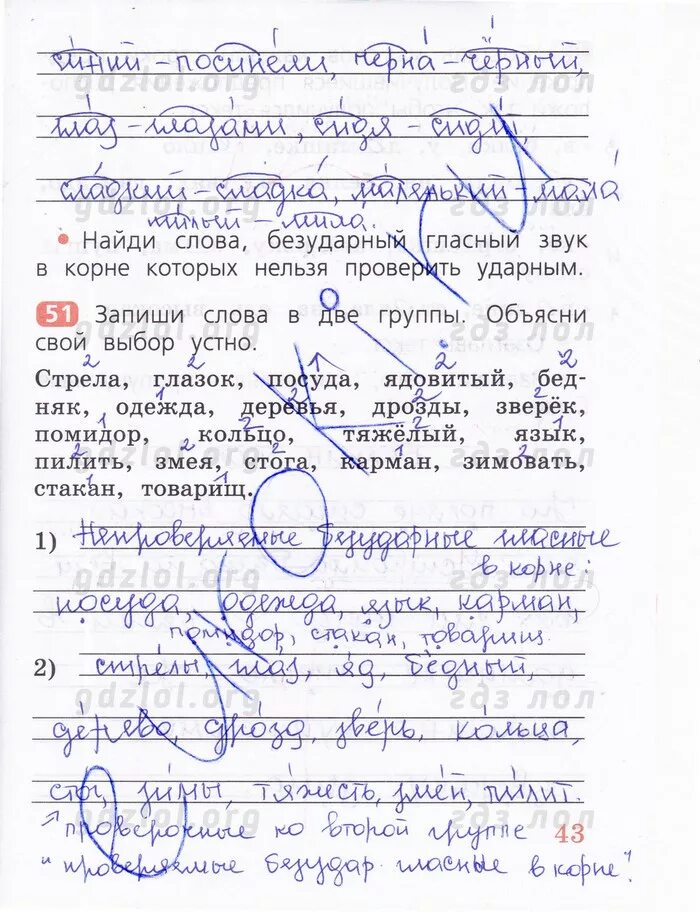 синий – посинели, черна – чёрный,
глаз – глазами, сидя – сиди,
сладкий – сладка, маленький – мала
милый – мила.
• Найди слова, безударный гласный звук
в корне которых нельзя проверить ударным.
51 Запиши слова в две группы. Объясни
свой выбор устно.
2 2 1 2 2
Стрела, глазок, посуда, ядовитый, бед-
1 2 2 2
няк, одежда, деревья, дрозды, зверёк,
1 2 2 1
помидор, кольцо, тяжёлый, язык,
2 2 2 1 2
пилить, змея, стога, карман, зимовать,
1 1
стакан, товарищ.
1) Непроверяемые безударные гласные
в корне:
посуда, одежда, язык, карман,
помидор, стакан, товарищ.
2) стрелы, глаз, яд, бедный,
дерево, дрозд, зверь, кольца,
стог, зимы, тяжесть, змей, пилит.
проверочные ко второй группе
43
"проверяемые безудар. гласные в корне".
gdzlol.org гдз лол